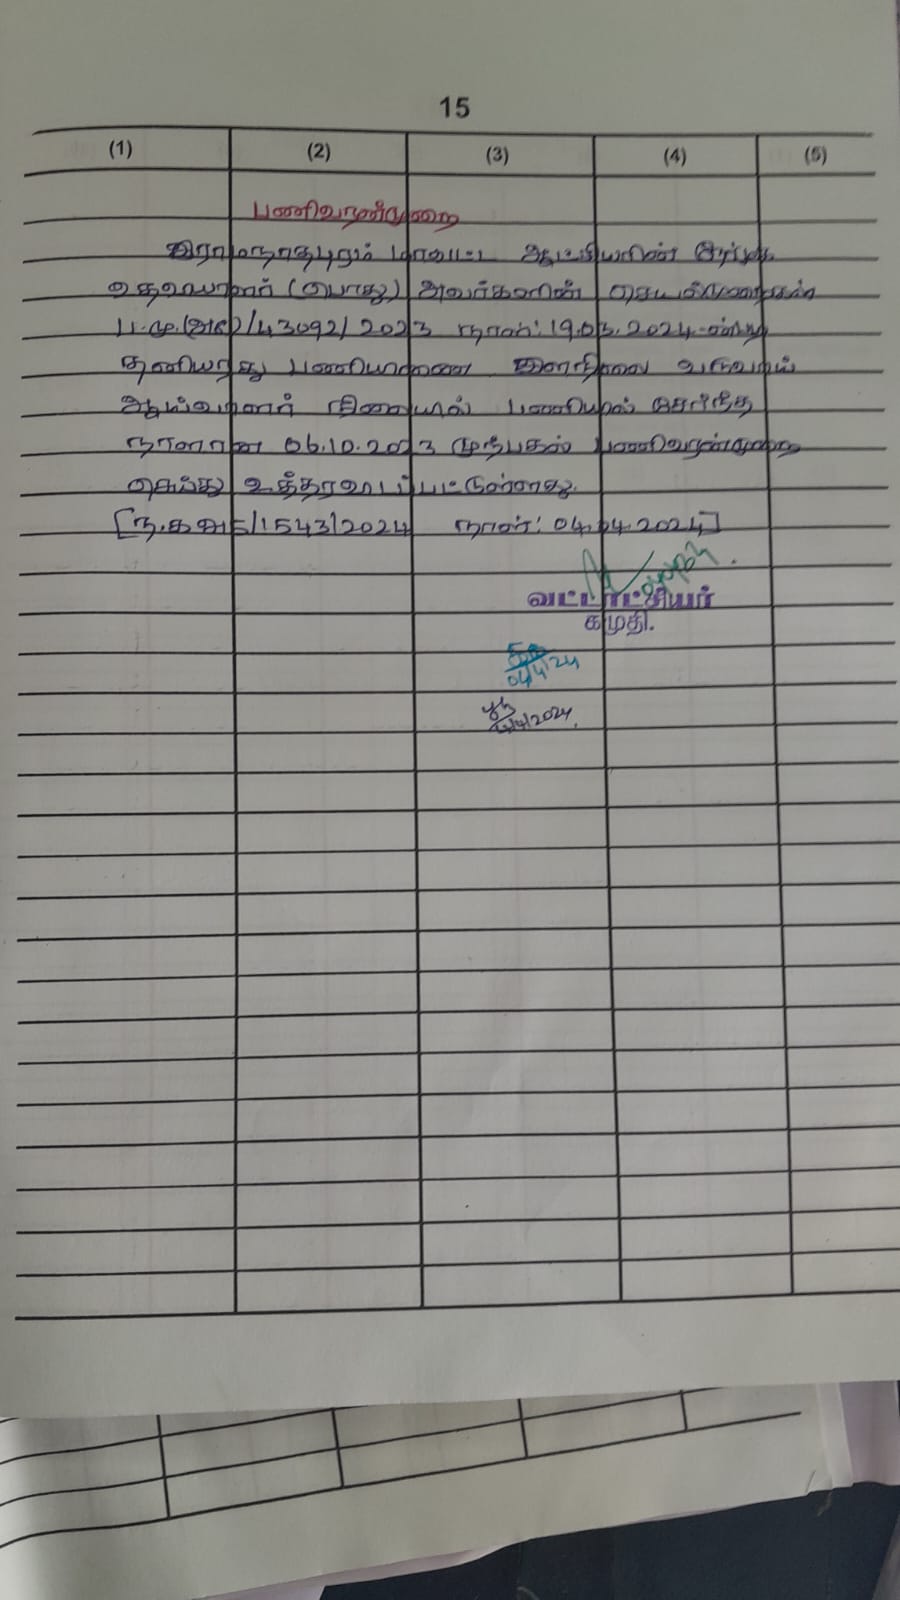 15
(1) (2) (3) (4) (5)
பணிவரன்முறை
இராமநாதபுரம் மாவட்ட ஆட்சியரின் நேர்முக
உதவியாளர் (பொது) அவர்களின் செயல்முறைகள்
ப.மு.(அ2)/43092/2023 நாள்: 19.03.2024-ன்படி
தனியரது பணியினை இளநிலை வருவாய்
ஆய்வாளர் நிலையில் பணியில் சேர்ந்த
நாளான 06.10.2023 முற்பகல் பணிவரன்முறை
செய்து உத்தரவிடப்பட்டுள்ளது.
[ந.க அ5/1543/2024 நாள்: 04.04.2024]
வட்டாட்சியர்
கமுதி.
04/4/24
4/4/2024